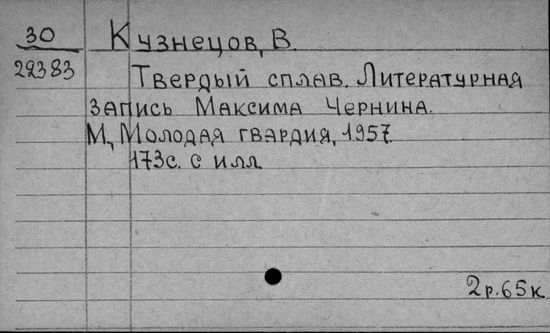 30 Кузнецов, В.
29383 Твердый сплав. Литературная
запись Максима Чернина.
М., Молодая гвардия, 1957.
173с. с илл.
2р.65к